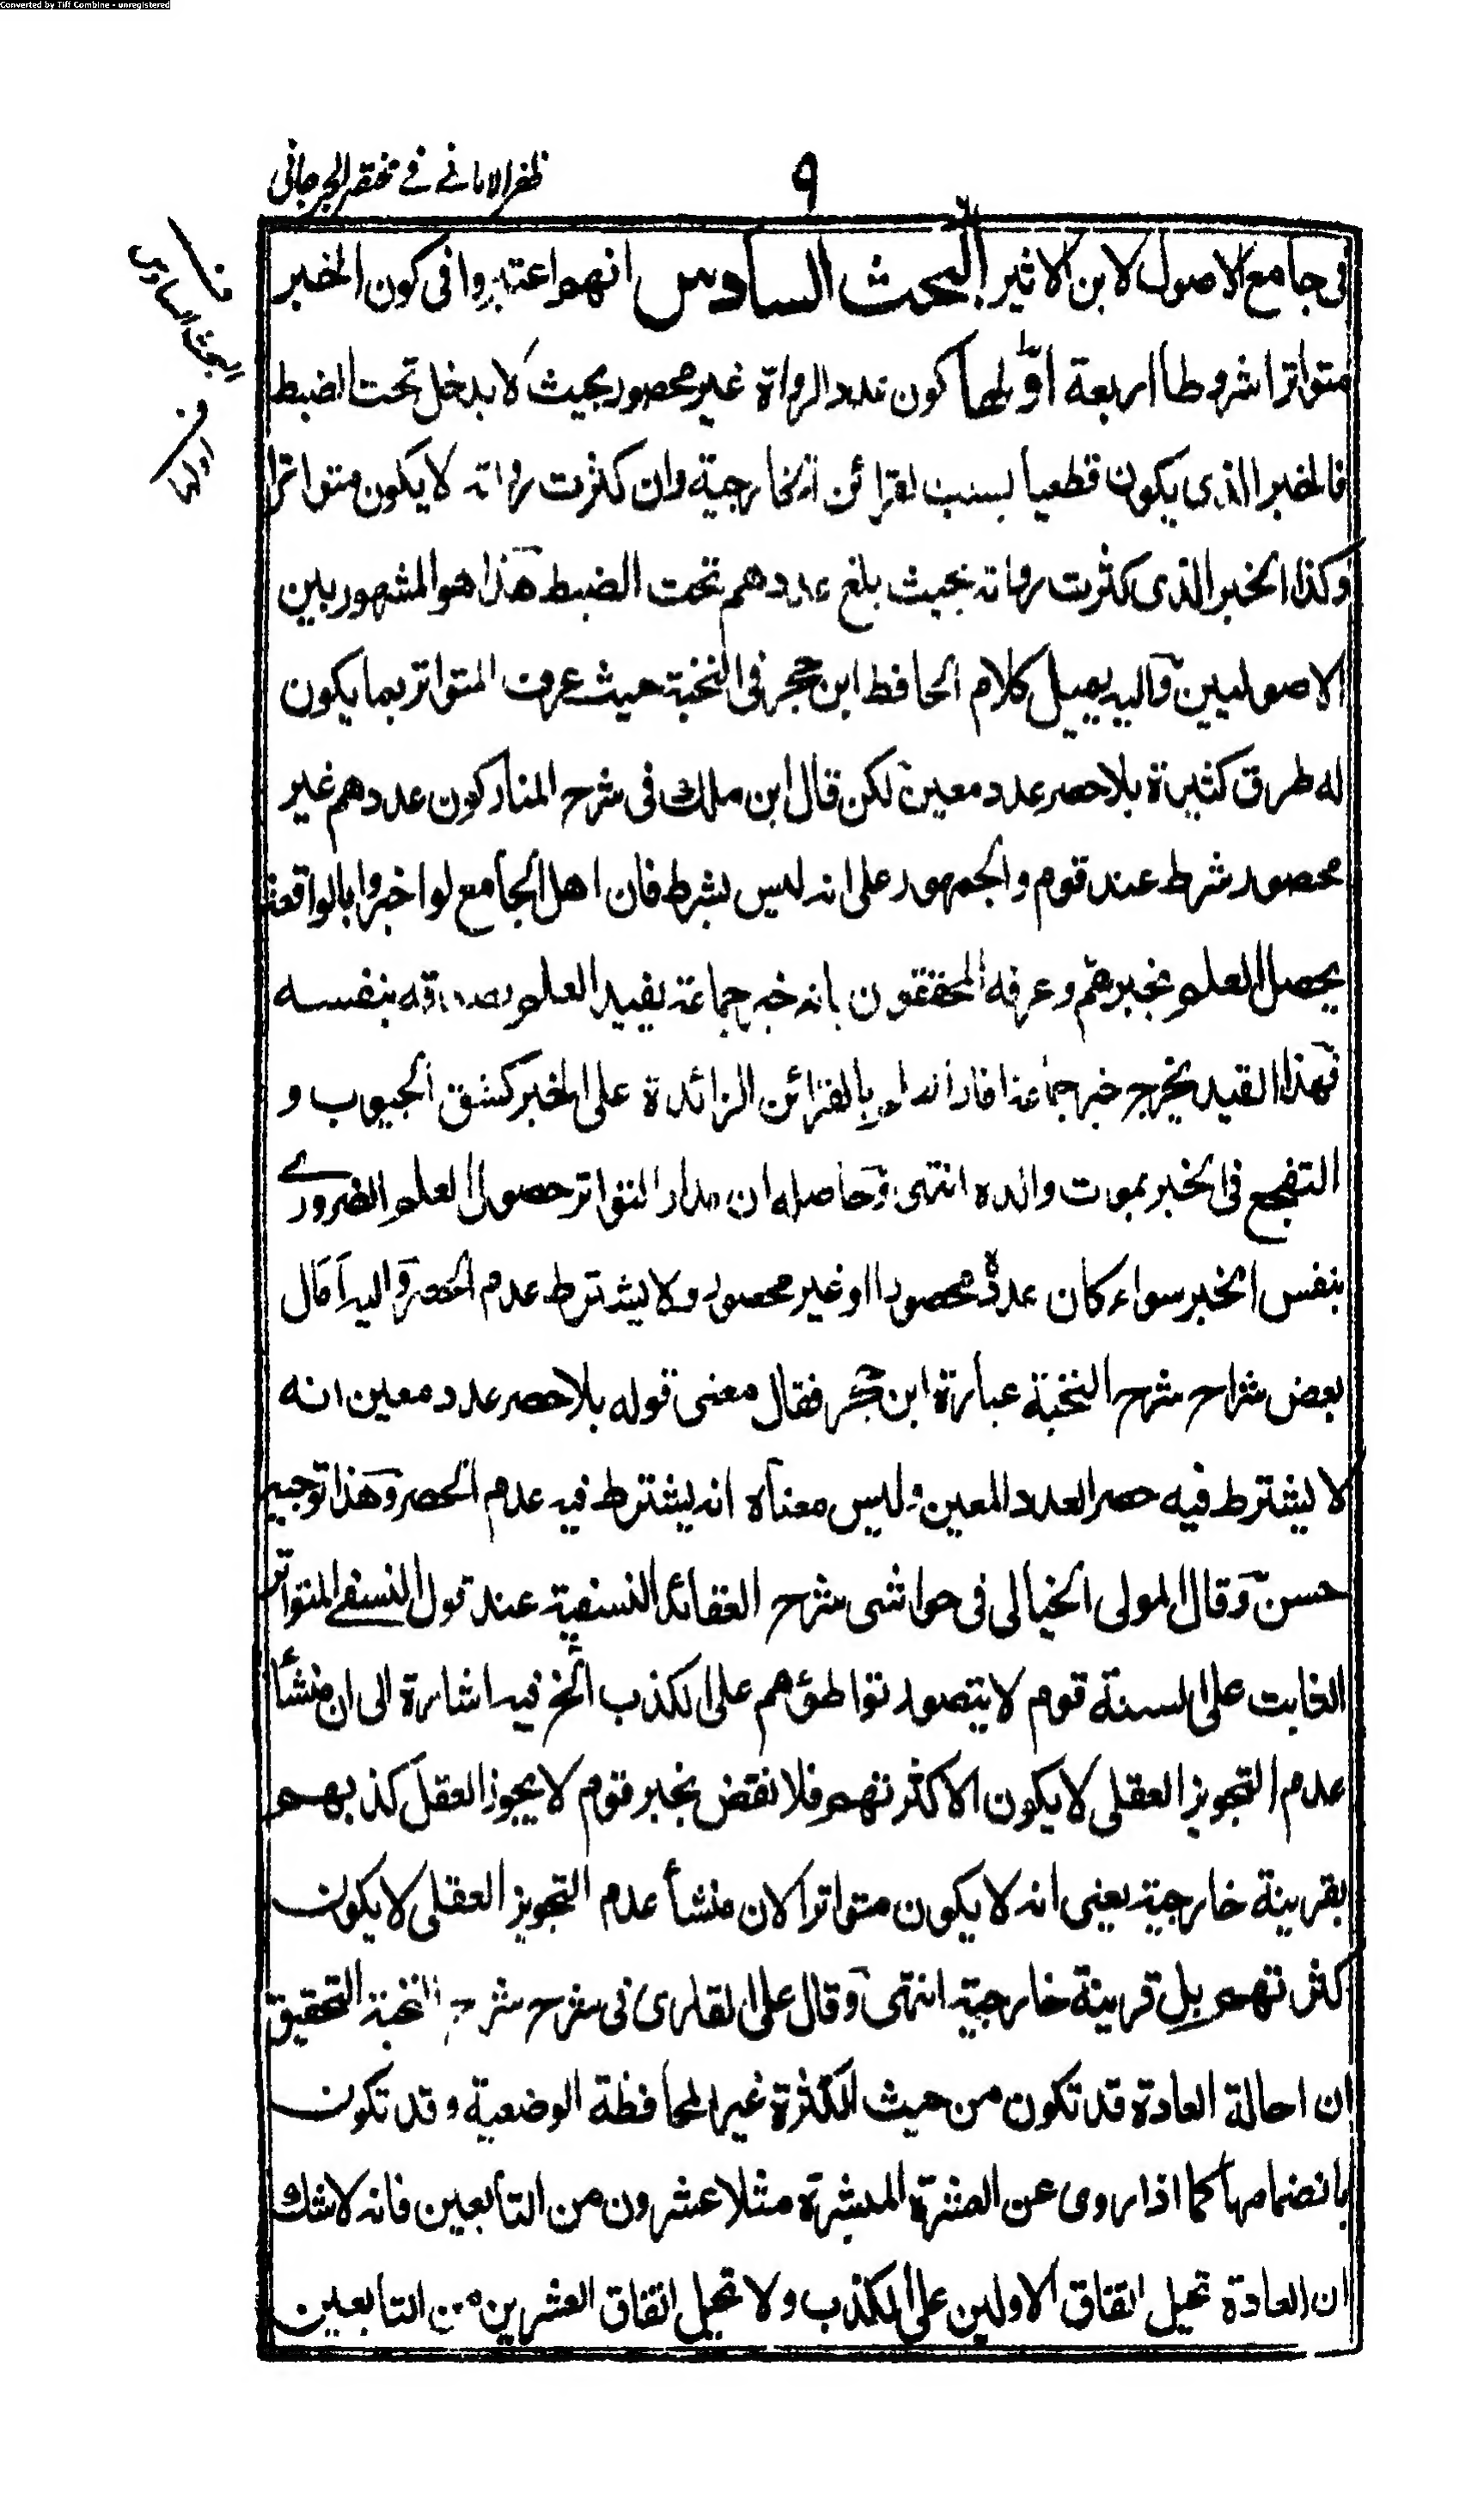 Converted by Tiff Combine - unregistered
ظفر الامانے فے مختصر الجرجانی
٩
فی جامع الاصول لابن الاثیر البحث السادس انهم اعتبروا فی کون الخبر
متواترا شروطا اربعة اولها کون عدد الرواة غیر محصور بحیث لا یدخل تحت الضبط
فالخبر الذی یکون قطعیا بسبب القرائن الخارجیة وان کثرت رواته لا یکون متواترا
وکذا الخبر الذی کثرت رواته بحیث بلغ عددهم تحت الضبط هذا هو المشهور بین
الاصولیین والیه یمیل کلام الحافظ ابن حجر فی النخبة حیث عرف المتواتر بما یکون
له طرق کثیرة بلا حصر عدد معین لکن قال ابن ملک فی شرح المنار کون عددهم غیر
محصور شرط عند قوم والجمهور علی انه لیس بشرط فان اهل الجامع لو اخبروا بالواقعة
یحصل العلم بخبرهم وعرفه المحققون بانه خبر جماعة یفید العلم بصدقه بنفسه
فهذا القید یخرج خبر جماعة افاد العلم بالقرائن الزائدة علی الخبر کشق الجیوب و
التفجع فی الخبر بموت والده انتهی وحاصله ان مدار التواتر حصول العلم الضرورے
بنفس الخبر سواء کان عدده محصورا او غیر محصور ولا یشترط عدم الحصر والیه امال
بعض شراح شرح النخبة عبارة ابن حجر فقال معنی قوله بلا حصر عدد معین انه
لا یشترط فیه حصر العدد المعین ولیس معناه انه یشترط فیه عدم الحصر وهذا توجیه
حسن وقال المولی الخیالی فی حواشی شرح العقائد النسفیة عند قول النسفے المتواتر
الثابت علی السنة قوم لا یتصور تواطؤهم علی الکذب الخ فیه اشارة الی ان منشأ
عدم التجویز العقلی لا یکون الا کثرتهم فلا نقض بخبر قوم لا یجوز العقل کذبهم
بقرینة خارجیة یعنی انه لا یکون متواترا لان منشأ عدم التجویز العقلی لا یکون
کثرتهم بل قرینة خارجیة انتهی وقال علی القاری فی شرح شرح النخبة التحقیق
ان احالة العادة قد تکون من حیث الکثرة غیر المحافظة الوضعیة وقد تکون
بانضمامها کما اذا روی عن العشرة المبشرة مثلا عشرون من التابعین فانه لا شک
ان العادة تحیل اتفاق الاولین علی الکذب ولا تحیل اتفاق العشرین من التابعین